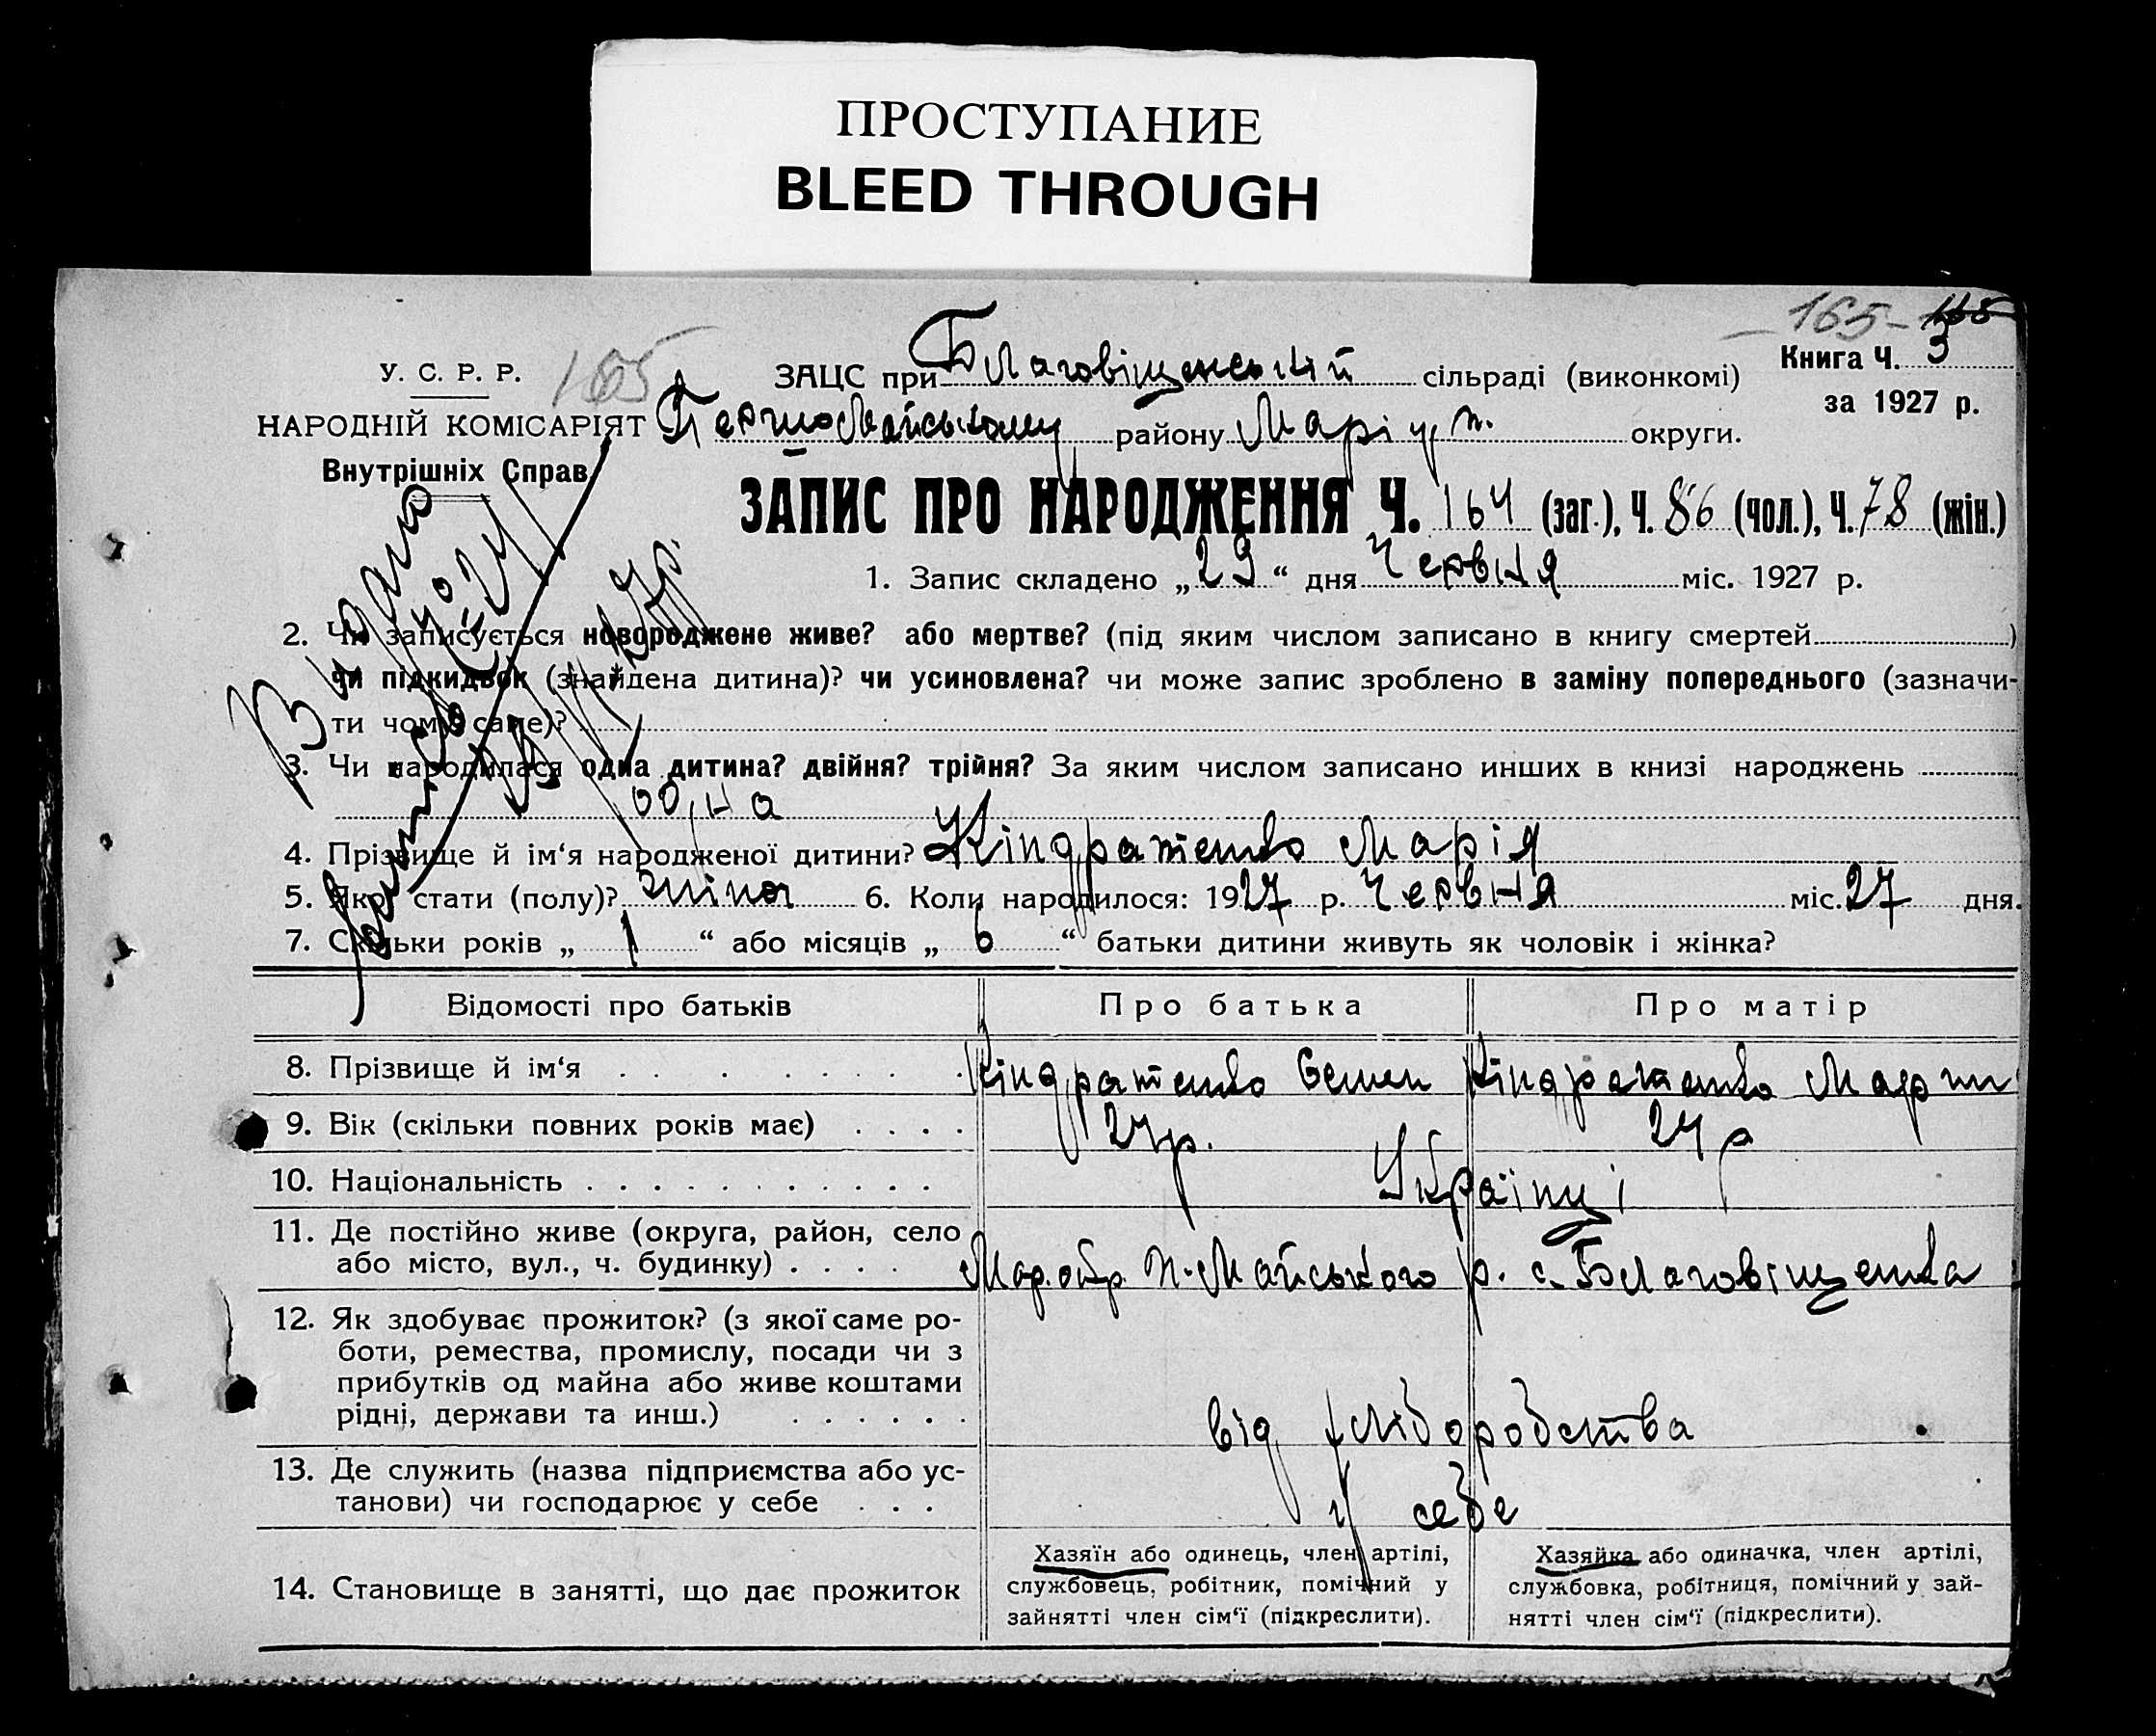 ПРОСТУПАНИЕ
BLEED THROUGH
165 165
У. С. Р. Р. 165 ЗАЦС при Благовіщенській сільраді (виконкомі) Книга Ч. 3
за 1927 р.
НАРОДНІЙ КОМІСАРІЯТ Першомайському району Маріуп. округи.
Внутрішніх Справ
ЗАПИС ПРО НАРОДЖЕННЯ Ч. 164 (заг.), Ч. 86 (чол.), Ч. 78 (жін.)
1. Запис складено „29“ дня Червня міс. 1927 р.
Видано
2. Чи записується новороджене живе? або мертве? (під яким числом записано в книгу смертей )
чи підкидьок (знайдена дитина)? чи усиновлена? чи може запис зроблено в заміну попереднього (зазначи-
ти чому саме)?
3. Чи народилася одна дитина? двійня? трійня? За яким числом записано инших в книзі народжень
одна
4. Прізвище й ім‘я народженої дитини? Кіндратенко Марія
5. Якої стати (полу)? жіноч 6. Коли народилося: 1927 р. Червня міс. 27 дня.
7. Скільки років „ 1 “ або місяців „ 6 “ батьки дитини живуть як чоловік і жінка?
Відомості про батьків Про батька Про матір
8. Прізвище й ім‘я Кіндратенко Семен Кіндратенко Марти
9. Вік (скільки повних років має) 24 р. 24 р
10. Національність Українці
11. Де постійно живе (округа, район, село
або місто, вул., ч. будинку) Мар. окр. П.-Майського р. с. Благовіщенка
12. Як здобуває прожиток? (з якої саме ро-
боти, ремества, промислу, посади чи з
прибутків од майна або живе коштами
рідні, держави та инш.) від хлібородства
13. Де служить (назва підприємства або ус-
танови) чи господарює у себе у себе
14. Становище в занятті, що дає прожиток
Хазяїн або одинець, член артілі,
службовець, робітник, помічний у
зайнятті член сім‘ї (підкреслити).
Хазяйка або одиначка, член артілі,
службовка, робітниця, помічний у зай-
нятті член сім‘ї (підкреслити).